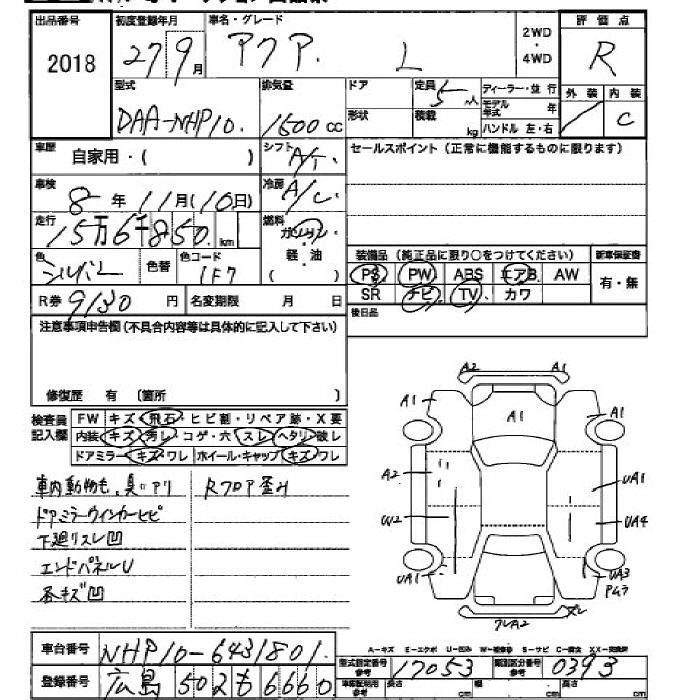 出品番号 初度登録年月 車名・グレード 2WD・4WD 評価点
2018 27 9月 アクア. L R
型式 排気量 ドア 定員 ディーラー・並行 外装 内装
DAA-NHP10. 1500cc 形状 積載 5人 kg モデル年式 年 ハンドル 左・右 C
車歴 自家用・( ) シフト A/T. セールスポイント(正常に機能するものに限ります)
車検 8年11月(10日) 冷房 A/C.
走行 15万6千850km 燃料 ガソリン 軽・油 ( )
装備品(純正品に限り○をつけてください) 新車保証書
色 シルバー 色替 色コード 1F7
PS PW ABS エアB AW 有・無
SR ナビ TV カワ
R券 9130円 名変期限 月 日
後日品
注意事項申告欄(不具合内容等は具体的に記入して下さい)
修復歴 有 〔箇所 〕
検査員記入欄
FW キズ・飛石・ヒビ割・リペア跡・X要
内装 キズ・汚レ・コゲ・穴・スレ・ヘタリ・破レ
ドアミラー キズ・ワレ ホイール・キャップ キズ・ワレ
車内動物毛、臭いアリ Rフロア歪み
ドアミラーウィンカーヒビ
下廻リスレ凹
エンドパネルU
各キズ凹
A2 A1
A1 A1 A1
A2 UA1
W2 UA4
UA1 UA3
A2 スレ
A-キズ E-エクボ U-凹み W-補修跡 S-サビ C-腐食 XX-交換済
車台番号 NHP10-6431801.
型式指定番号 参考 17053 類別区分番号 参考 0393
登録番号 広島 502も6660
長さ cm 幅 cm 高さ cm